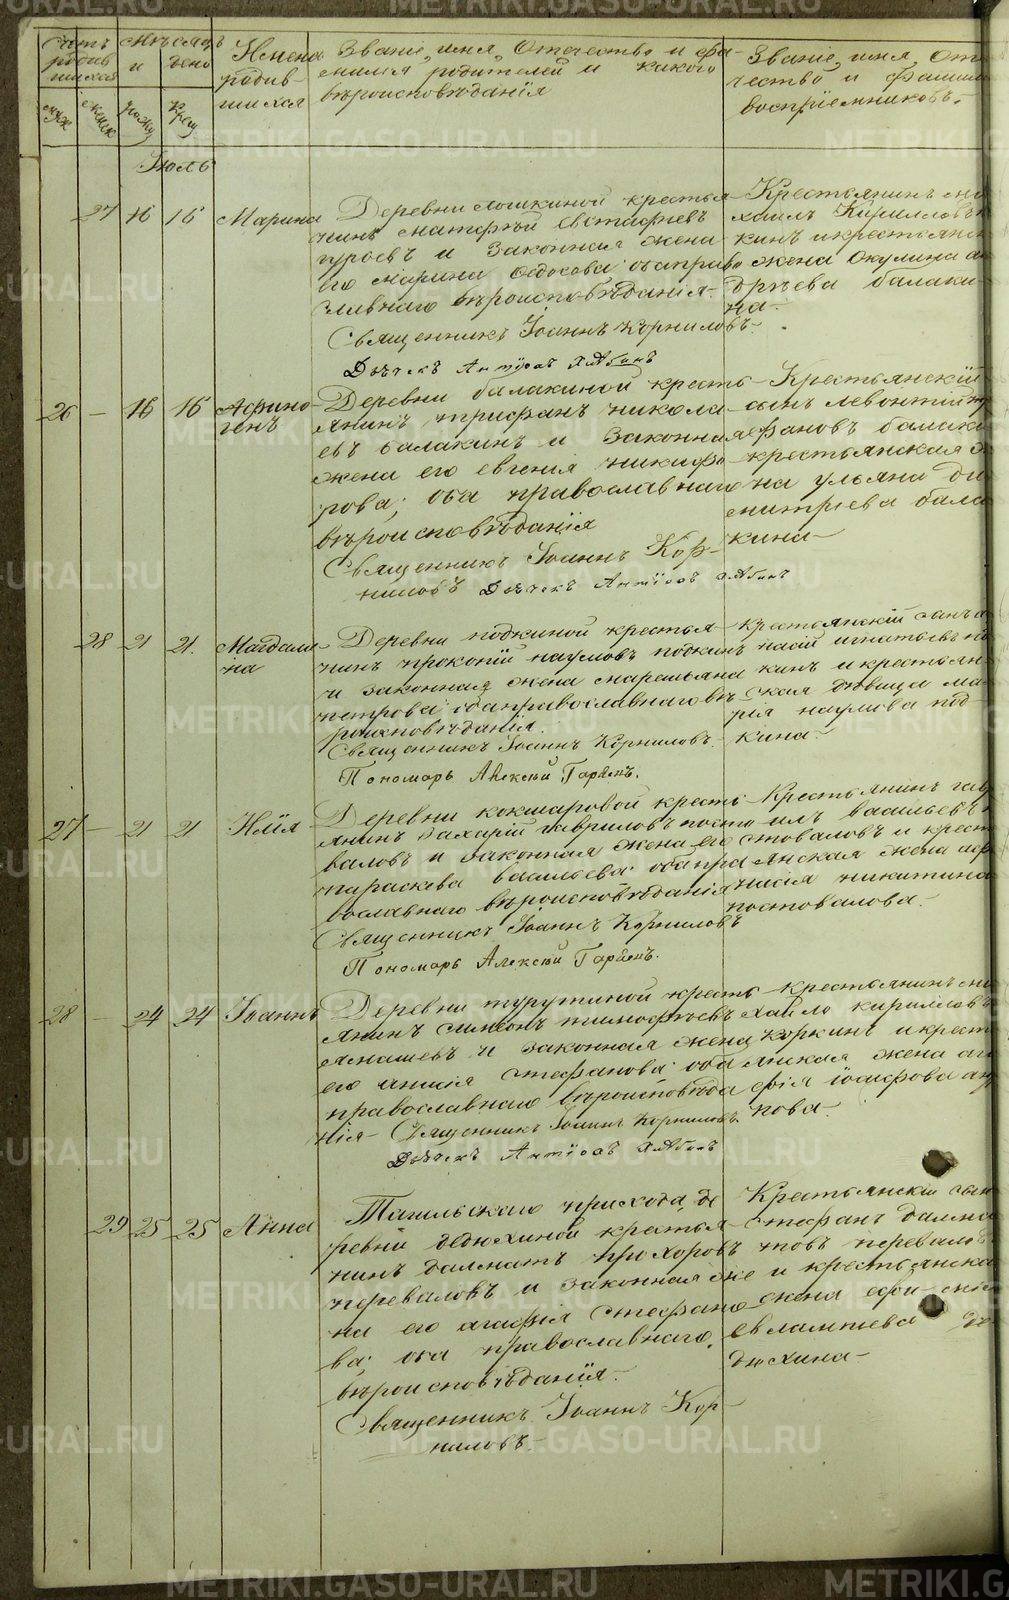 Счетъ родив шихся
муж
женск
Мѣсяцъ и день
рожд
крещ
Имена родив шихся
Званіе, имя, Отечество и фа-
милія родителей и какого
вѣроисповѣданія
Званіе, имя, Оте
чество и фамили
воспріемниковъ.
Іюль
27 16 16 Марина
Деревни крестья-
нинъ Матфей Евстафіевъ
гуровъ и Законная жена
его Марина Ѳедосова оба право
славнаго вѣроисповѣданія.
Священникъ Іоаннъ Корниловъ
Дьячекъ
Крестьянинъ ми
хаилъ Кириловъ
кинъ и крестьянск
жена Окулина ан
дрѣева балаки-
на.
26 — 16 16 Аѳино-
генъ
Деревни балакиной кресть
янинъ трифанъ никола-
евъ балакинъ и Законная
жена его евгенія никифо-
рова; оба православнаго
вѣроисповѣданія
Священникъ Іоаннъ Кор-
ниловъ Дьячекъ
Крестьянскій
сынъ левонтій
фановъ балаки
крестьянская же
на ульяна ди
митріева бала
кина
28 21 21. Магдали
на
Деревни подкиной крестья
нинъ прокопій наумовъ подкинъ
и законная жена маремьяна
петрова оба православнаго вѣ
роисповѣданія.
Священникъ Іоаннъ Корниловъ.
Пономарь Алексѣй
Крестьянскій сынъ а
насій игнатьевъ по
кинъ и крестьян-
ская дѣвица ма-
рія наумова под-
кина
27 — 21 21 Илія
Деревни кокшаровой кресть
янинъ Захарій гавриловъ посто
валовъ и законная жена его
параскева васильева оба пра
вославнаго вѣроисповѣданія
Священникъ Іоаннъ Корниловъ
Пономарь Алексѣй
Крестьянинъ гав
илъ васильевъ
стоваловъ и крест
янская жена
никитина
постовалова.
28 — 24 24 Іоаннъ
Деревни турутиной кресть
янинъ симеонъ тимофѣевъ
и законная жена
его анисія стефанова оба
православнаго вѣроисповѣда
нія Священникъ Іоаннъ Корниловъ.
Дьячекъ
крестьянинъ ми
хайло кириловъ
коркинъ и крест
янская жена ага
фія іосифова
пова.
29 25 25 Анна
Тагильскаго прихода, де
ревни дедюхиной крестья
нинъ далматъ прохоровъ
переваловъ и законная же
на его агафія стефано
ва; оба православнаго.
вѣроисповѣданія.
Священникъ Іоаннъ Кор-
ниловъ.
Крестьянскій сын
стефанъ далма
товъ перевало
и крестьянска
жена
евлампіева де
дюхина